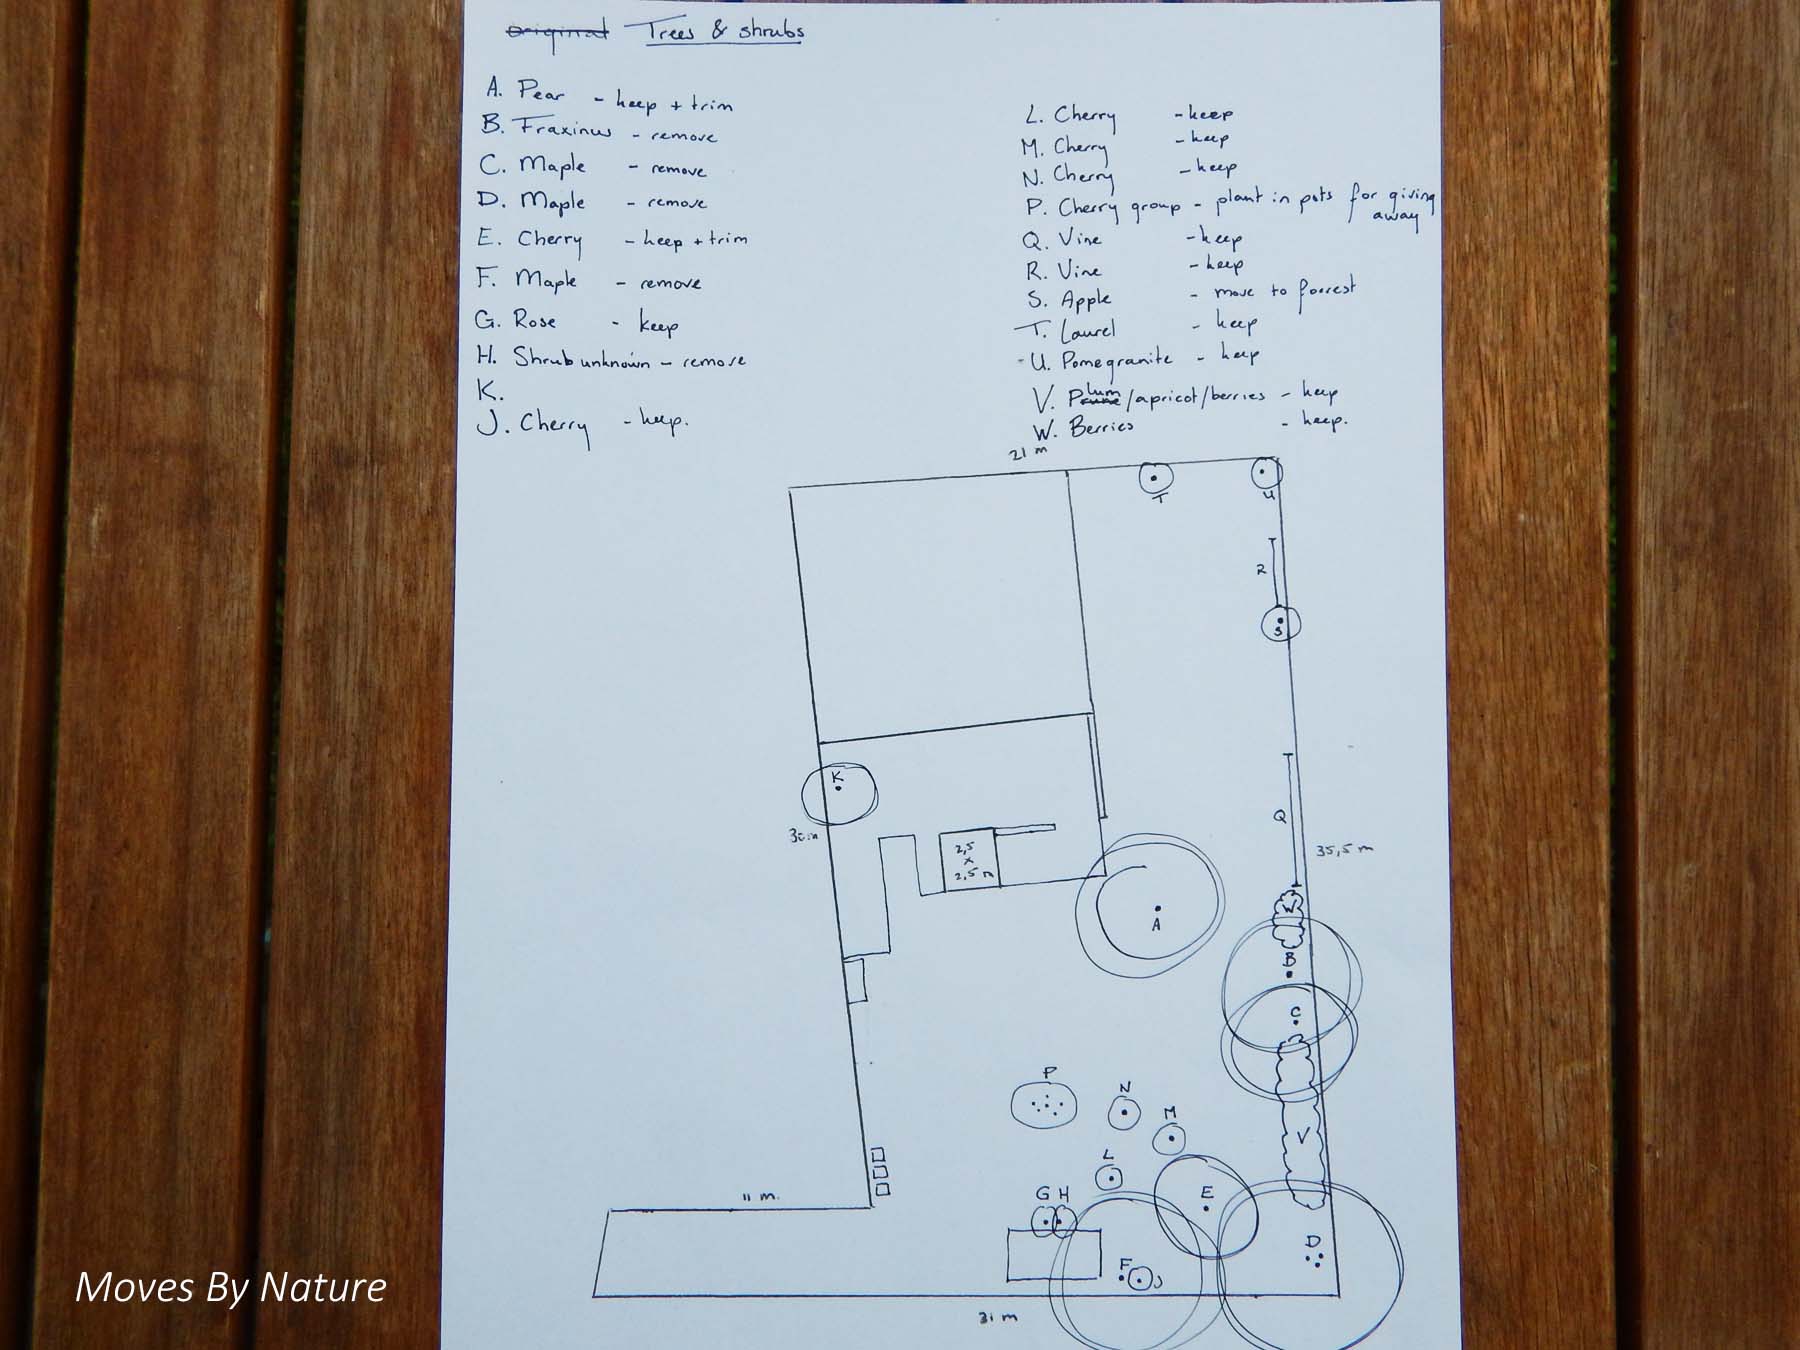 original Trees & shrubs
A. Pear - keep + trim
B. Fraxinus - remove
C. Maple - remove
D. Maple - remove
E. Cherry - keep + trim
F. Maple - remove
G. Rose - keep
H. Shrub unknown - remove
K.
J. Cherry - keep.
L. Cherry - keep
M. Cherry - keep
N. Cherry - keep
P. Cherry group - plant in pots for giving
away
Q. Vine - keep
R. Vine - keep
S. Apple - move to forrest
T. Laurel - keep
U. Pomegranite - keep
V. Plum/apricot/berries - keep
W. Berries - keep.
21 m
T
U
R
S
K
30 m
2,5
x
2,5 m
Q
35,5 m
W
A
B
C
P
N
M
V
L
E
11 m.
G H
D
F J
31 m
Moves By Nature